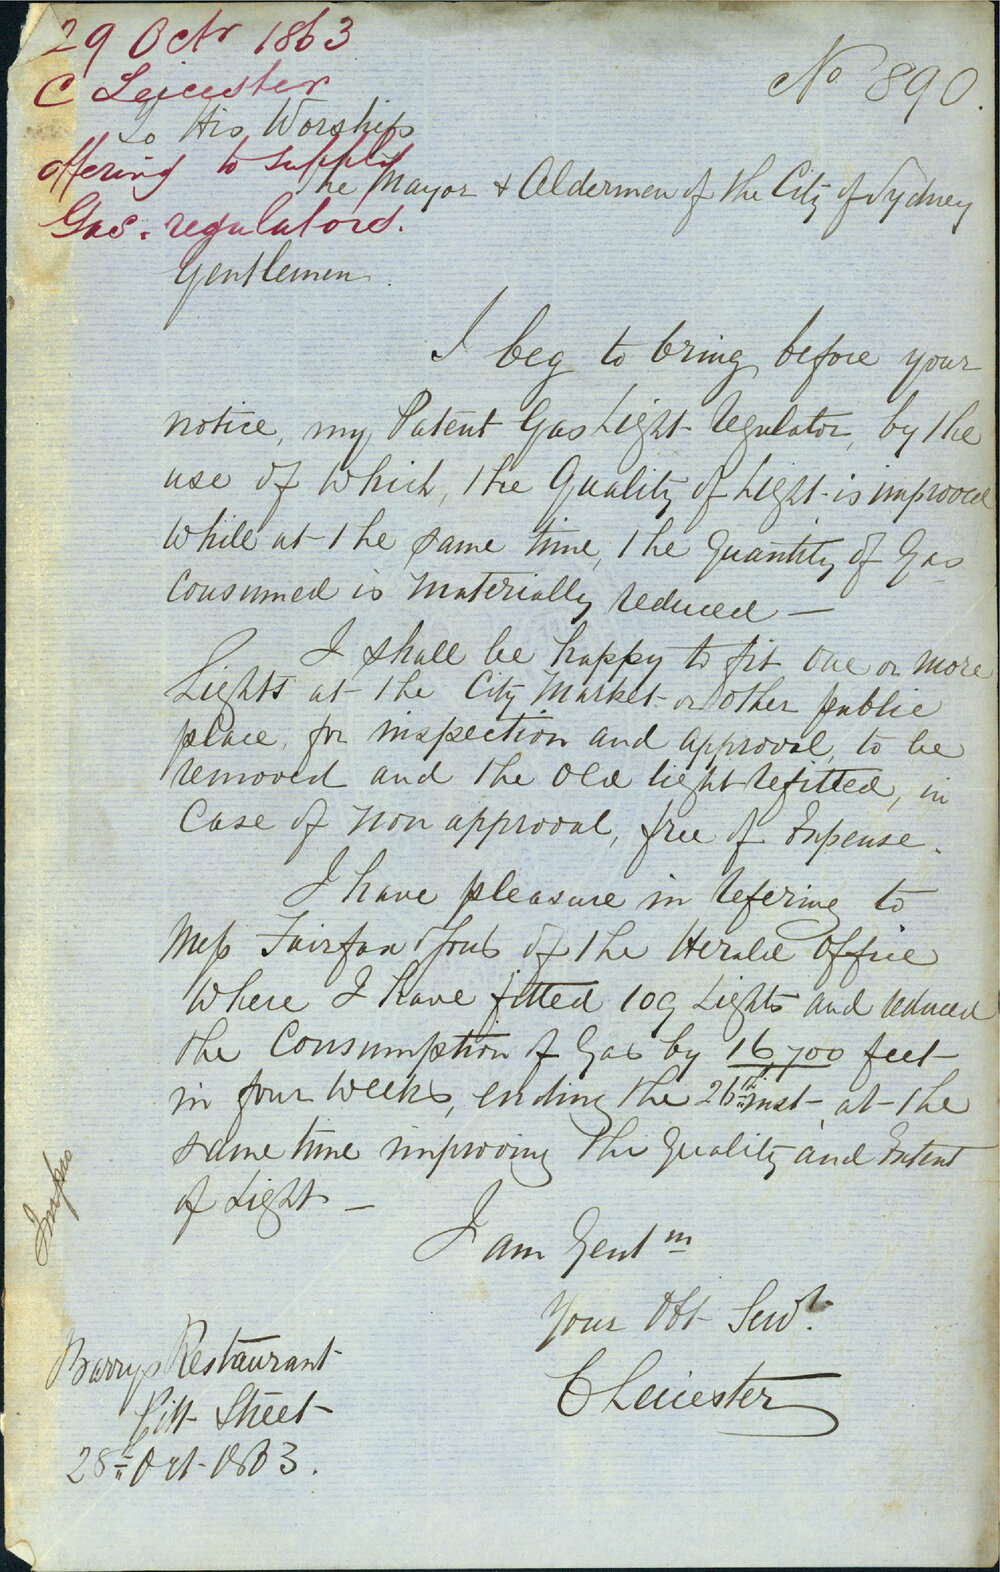 29 Octr 1863
C Leicester
offering to supply
Gas. regulators.
No 890.
To His Worship
The Mayor & Aldermen of the City of Sydney
Gentlemen
I beg to bring before your
notice, my Patent Gas Light regulator, by the
use of which, the Quality of Light is improved
while at the same time, the Quantity of Gas
Consumed is materially reduced —
I shall be happy to fit one or more
Lights at the City Market or other public
place, for inspection and approval, to be
removed and the old light refitted, in
Case of non approval, free of Expense.
I have pleasure in refering to
Mess Fairfax & Sons of the Herald Office
where I have fitted 109 Lights and reduced
the Consumption of Gas by 16,700 feet
in four weeks, ending the 26th inst at the
same time improving the Quality and Extent
of Light —
I am Gentm
Your Obt Servt.
C Leicester
Barrys Restaurant
Pitt Street
28th Oct 1863.